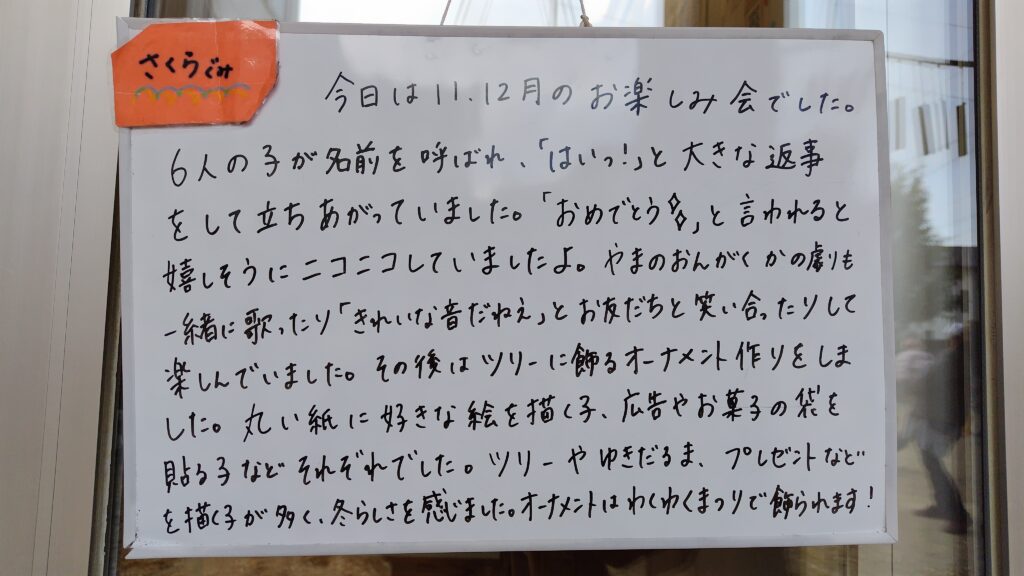 さくらぐみ
今日は11.12月のお楽しみ会でした。
6人の子が名前を呼ばれ、「はいっ!」と大きな返事
をして立ちあがっていました。「おめでとう」と言われると
嬉しそうにニコニコしていましたよ。やまのおんがくかの劇も
一緒に歌ったり「きれいな音だねぇ」とお友だちと笑い合ったりして
楽しんでいました。その後はツリーに飾るオーナメント作りをしま
した。丸い紙に好きな絵を描く子、広告やお菓子の袋を
貼る子などそれぞれでした。ツリーやゆきだるま、プレゼントなど
を描く子が多く、冬らしさを感じました。オーナメントはわくわくまつりで飾られます!